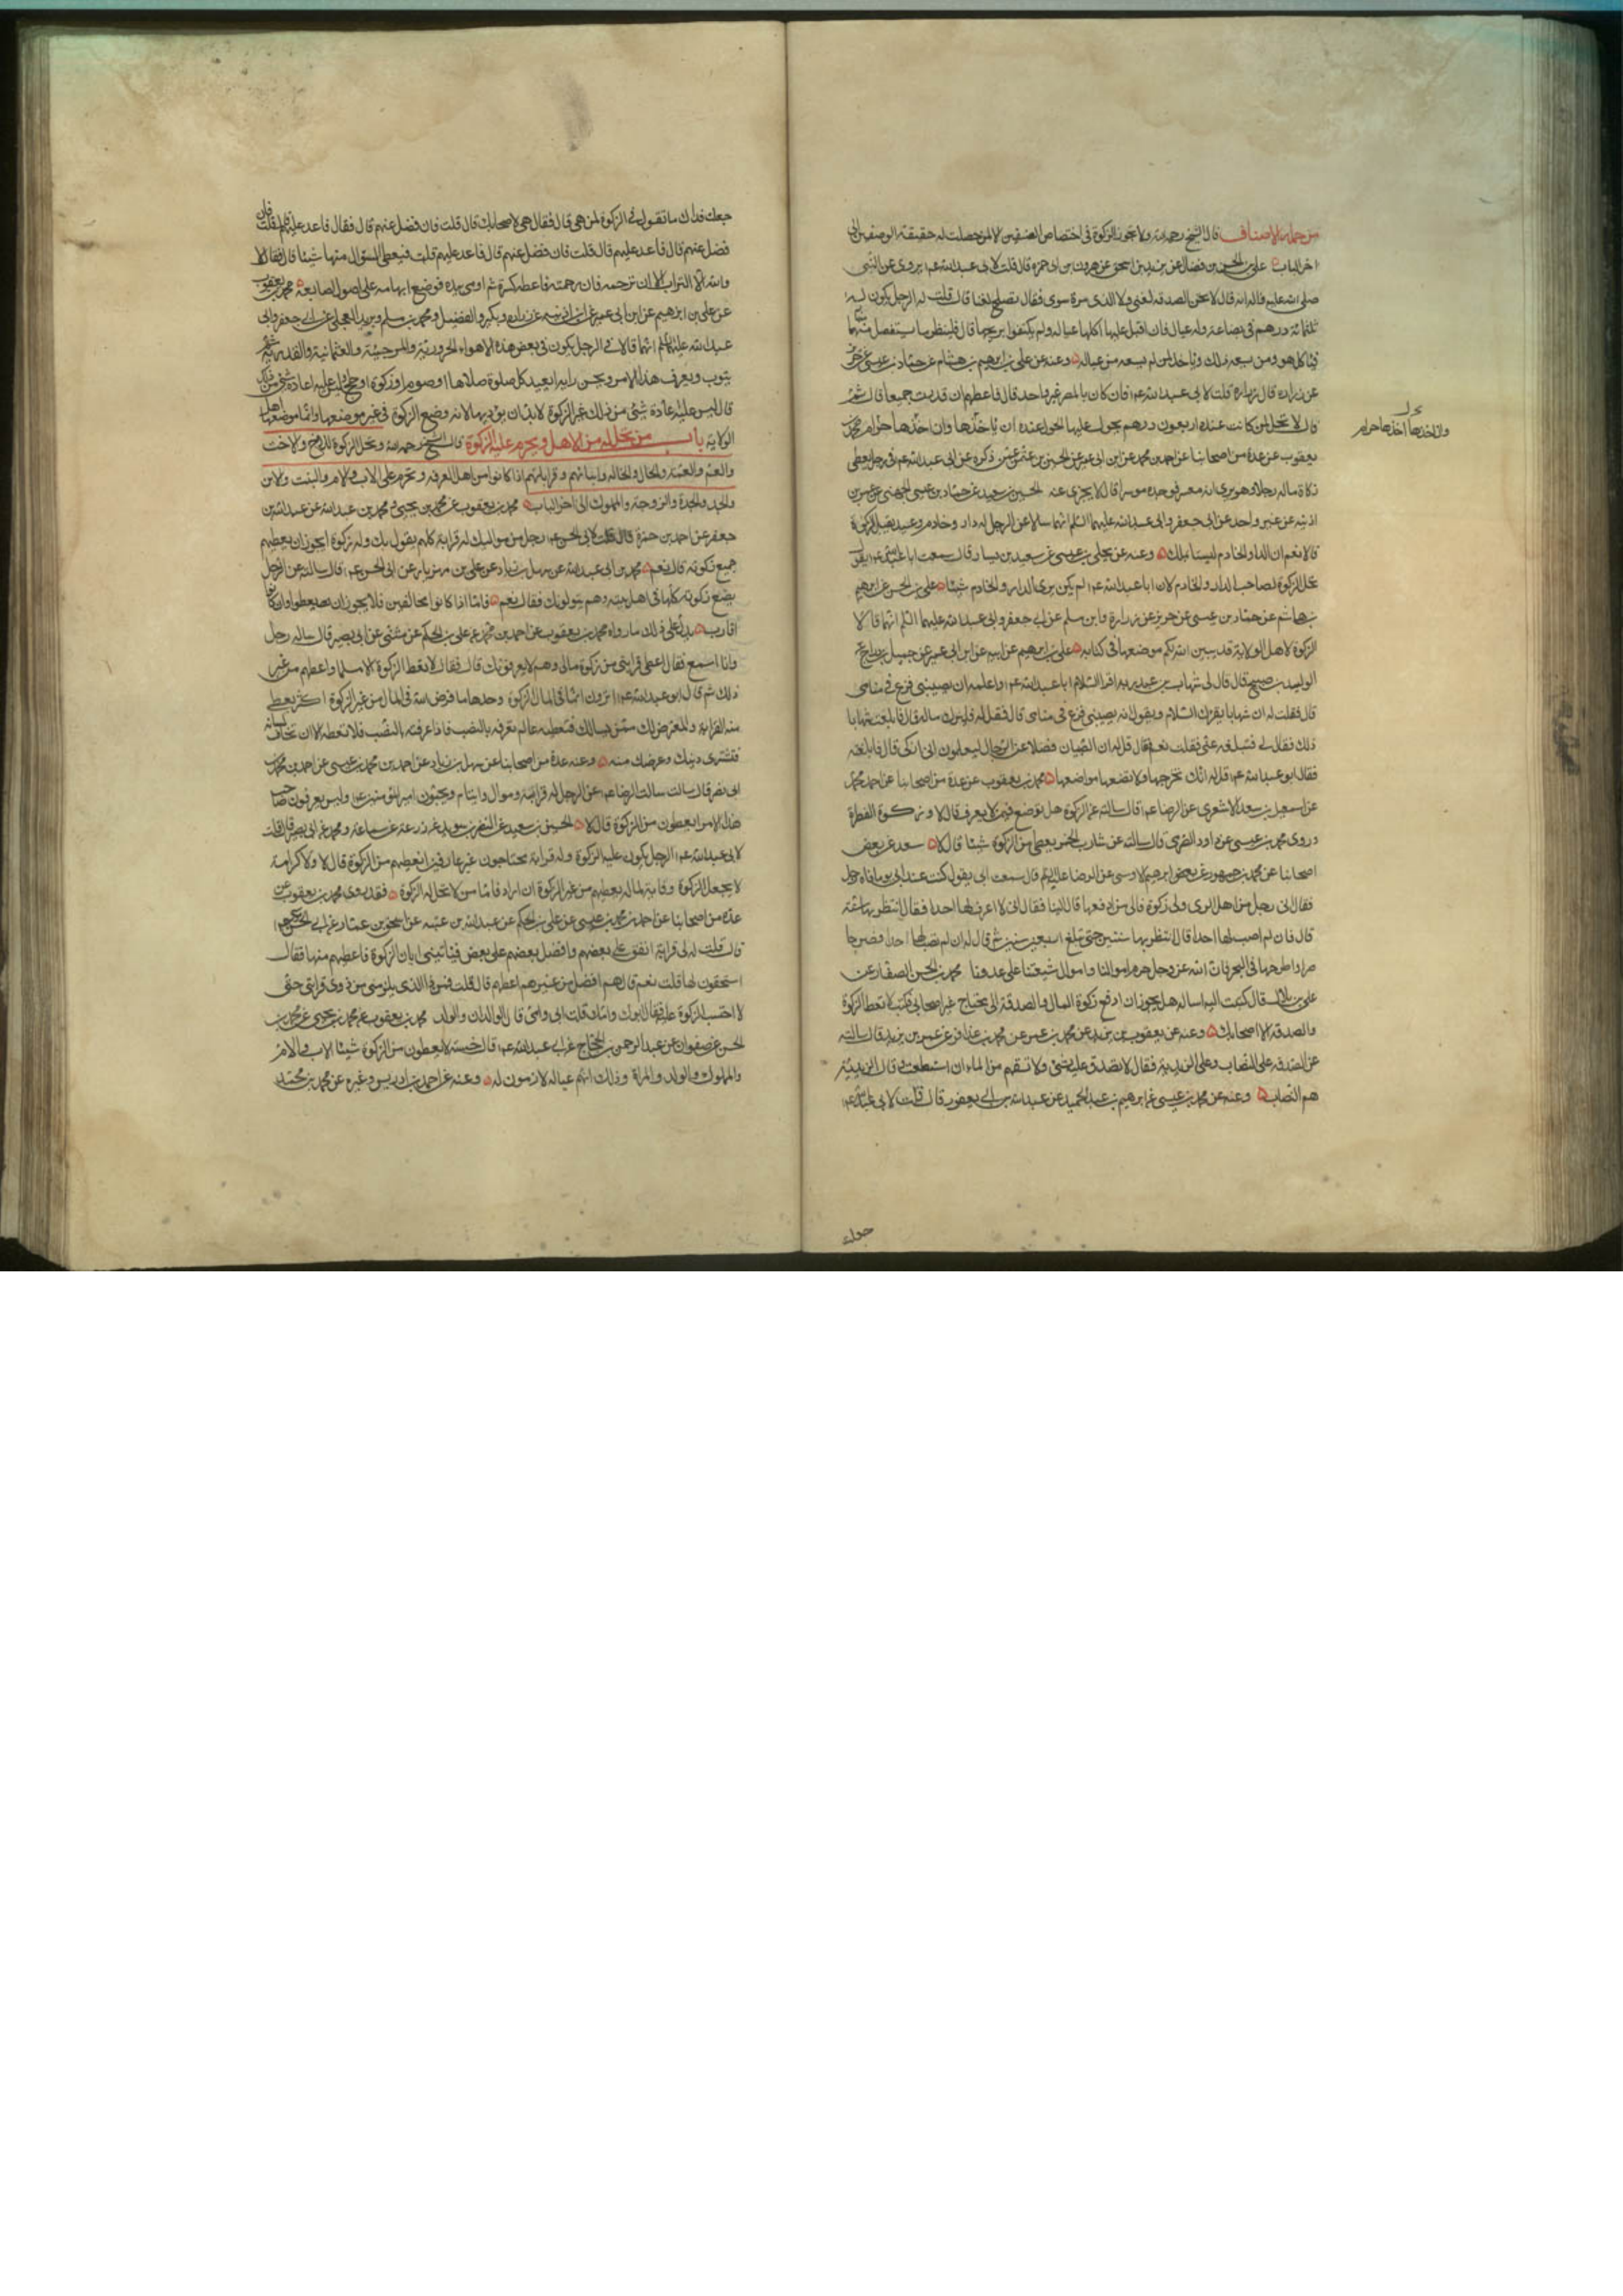 من جملة الاصناف قال الشيخ رحمه الله ولا يجوز الزكوة في اختصاص الصنفين الا لمن حصلت له حقيقة الوصفين الى
اخر الباب علي بن الحسن بن فضال عن يزيد بن اسحق عن هرون بن حمزة قال قلت لابي عبد الله عم يروى عن النبي
صلى الله عليه واله انه قال لا تحل الصدقة لغني ولا لذي مرة سوى فقال لا تصلح لغني قال قلت له الرجل يكون له
ثلثمائة درهم في بضاعة وله عيال فان اقبل عليها اكلها عياله ولم يكتفوا بربحها قال فلينظر ما يستفضل منها
فياكله هو ومن يسعه ذلك وياخذ لمن لم يسعه من عياله وعنه عن علي بن ابراهيم بن هشام عن حماد بن عيسى عن حريز
عن زرارة قال قلت لابي عبد الله عم فان كان بالمصر غير واحد قال فاعطهم ان قدرت جميعا قال ثم
قال لا تحل لمن كانت عنده اربعون درهم يحول عليها الحول عنده ان ياخذها وان اخذها اخذها حرام محمد بن
يعقوب عن عدة من اصحابنا عن احمد بن محمد عن ابن ابي عمير عن الحسين بن عثمن عمن ذكره عن ابي عبد الله عم في رجل يعطي
زكاة ماله رجلا وهو يرى انه معسر فوجده موسرا قال لا يجزى عنه الحسين بن سعيد عن حماد بن عيسى عن عمر بن
اذينة عن غير واحد عن ابي جعفر وابي عبد الله عليهما السلم انهما سئلا عن الرجل له دار وخادم وعبد يقبل الزكوة
قالا نعم ان الدار والخادم ليسا بملك وعنه عن علي بن عيسى عن سعيد بن يسار قال سمعت ابا عبد الله عم يقول
تحل الزكوة لصاحب الدار والخادم لان ابا عبد الله عم لم يكن يرى الدار والخادم شيئا علي بن الحسن عن ابرهيم
بن هاشم عن حماد بن عيسى عن حريز عن زرارة وابن مسلم عن ابي جعفر وابي عبد الله عليهما السلم انهما قالا
الزكوة لاهل الولاية قد بين الله لكم موضعها في كتابه علي بن ابرهيم عن ابيه عن ابن ابي عمير عن جميل بن دراج عن
الوليد بن صبيح قال قال لي شهاب بن عبد ربه اقرا السلام ابا عبد الله عم واعلمه ان يصيبني فزع في منامي
قال فقلت له ان شهابا يقرئك السلام ويقول انه يصيبني فزع في منامي قال فقل له فليزك ماله قال فابلغت شهابا
ذلك فقال لي فتبلغه عني فقلت نعم فقال قل له ان الصبيان فضلا عن الرجال ليعلمون اني ازكي قال فابلغته
فقال ابو عبد الله عم قل له انك تخرجها ولا تضعها مواضعها محمد بن يعقوب عن عدة من اصحابنا عن احمد بن محمد
عن اسمعيل بن سعد الاشعري عن الرضا عم قال سالته عن الزكوة هل توضع فيمن لا يعرف قال لا ولا زكوة الفطرة
وروى محمد بن عيسى عن داود الصرمي قال سالته عن شارب الخمر يعطى من الزكوة شيئا قال لا سعد عن بعض
اصحابنا عن محمد بن جمهور عن ابرهيم الاوسي عن الرضا عليه السلم قال سمعت ابي يقول كنت عند ابي يوما فاتاه رجل
فقال اني رجل من اهل الري ولي زكوة فالى من ادفعها قال الينا فقال اني لا اعرف لها احدا فقال انتظر بها سنة
قال فان لم اصب لها احدا قال انتظر بها سنتين حتى بلغ اربع سنين ثم قال له ان لم تصب لها احدا فصرها
صرارا واطرحها في البحر فان الله عز وجل حرم اموالنا واموال شيعتنا على عدونا محمد بن الحسن الصفار عن
علي بن بلال قال كتبت اليه اساله هل يجوز ان ادفع زكوة المال والصدقة الى محتاج غير اصحابي فكتب لا تعط الزكوة
والصدقة الا اصحابك وعنه عن يعقوب بن يزيد عن محمد بن عمر عن محمد بن عذافر عن عمر بن يزيد قال سالته
عن الصدقة على النصاب وعلى الزيدية فقال لا تصدق عليهم بشئ ولا تسقهم من الماء ان استطعت وقال الزيدية
هم النصاب وعنه عن محمد بن عيسى عن ابرهيم بن عبد الحميد عن عبد الله بن ابي يعفور قال قلت لابي عبد الله عم
وان اخذها اخذها حرام
جعلت
جعلت فداك ما تقول في الزكوة لمن هي قال فقال هي لاصحابك قال قلت فان فضل عنهم قال فقال فاعد عليهم قلت فان
فضل عنهم قال فاعد عليهم قال قلت فان فضل عنهم قال فاعد عليهم قلت فيعطى السؤال منها شيئا قال فقال لا
والله الا التراب الا ان ترحمه فان رحمته فاعطه كسرة ثم اومى بيده فوضع ابهامه على اصول اصابعه محمد بن يعقوب
عن علي بن ابرهيم عن ابيه عن ابن ابي عمير عن ابن اذينة عن زرارة وبكير والفضيل ومحمد بن مسلم وبريد العجلي عن ابي جعفر وابي
عبد الله عليهما السلم انهما قالا في الرجل يكون في بعض هذه الاهواء الحرورية والمرجئة والعثمانية والقدرية ثم
يتوب ويعرف هذا الامر ويحسن رايه ايعيد كل صلوة صلاها او صوم او زكوة او حج او ليس عليه اعادة شئ من ذلك
قال ليس عليه اعادة شئ من ذلك غير الزكوة لابد ان يؤديها لانه وضع الزكوة في غير موضعها وانما موضعها اهل
الولاية باب من تحل له من الاهل وتحرم عليه الزكوة قال الشيخ رحمه الله وتحل الزكوة للاخ والاخت
والعم والعمة والخال والخالة وابنائهم وقراباتهم اذا كانوا من اهل المعرفة وتحرم على الاب والام والبنت والابن
والجد والجدة والزوجة والمملوك الى اخر الباب محمد بن يعقوب عن محمد بن يحيى ومحمد بن عبد الله عن عبد الله بن
جعفر عن احمد بن حمزة قال قلت لابي الحسن عم رجل من مواليك له قرابة كلهم يقول بك وله زكوة ايجوز ان يعطيهم
جميع زكوته قال نعم محمد بن ابي عبد الله عن سهل بن زياد عن علي بن مهزيار عن ابي الحسن عم قال سالته عن الرجل
يضع زكوته كلها في اهل بيته وهم يتولونك فقال نعم فاما اذا كانوا مخالفين فلا يجوز ان يعطوا وان كانوا
اقارب يدل على ذلك ما رواه محمد بن يعقوب عن احمد بن محمد عن علي بن الحكم عن مثنى عن ابي بصير قال ساله رجل
وانا اسمع فقال اعطي قرابتي من زكوة مالي وهم لا يعرفونك قال فقال لا تعط الزكوة الا مسلما واعطهم من غير
ذلك ثم قال ابو عبد الله عم اترون انما في المال الزكوة وحدها ما فرض الله في المال من غير الزكوة اكثر يعطى
منه القرابة والمعترض لك ممن يسالك فتعطيه ما لم تعرفه بالنصب فاذا عرفته بالنصب فلا تعطه الا ان تخاف لسانه
فتشترى دينك وعرضك منه وعنه عدة من اصحابنا عن سهل بن زياد عن احمد بن محمد بن عيسى عن احمد بن محمد بن
ابي نصر قال سالت الرضا عم عن الرجل له قرابة وموال وايتام يحبون امير المؤمنين عم وليس يعرفون صاحب
هذا الامر ايعطون من الزكوة قال لا الحسين بن سعيد عن النضر بن سويد عن زرعة عن سماعة ومحمد عن ابي بصير قال قلت
لابي عبد الله عم الرجل يكون عليه الزكوة وله قرابة محتاجون غير عارفين ايعطيهم من الزكوة قال لا ولا كرامة
لا يجعل الزكوة وقاية لماله يعطيهم من غير الزكوة ان اراد فاما من لا تحل له الزكوة فقد روى محمد بن يعقوب عن
عدة من اصحابنا عن احمد بن محمد بن عيسى عن علي بن الحكم عن عبد الله بن عتبة عن اسحق بن عمار عن ابي الحسن موسى عم
قال قلت له لي قرابة انفق على بعضهم وافضل بعضهم على بعض فياتيني ابان الزكوة فاعطيهم منها فقال
استحقون لها قلت نعم قال هم افضل من غيرهم اعطهم قال قلت فمن ذا الذي يلزمني من ذوي قرابتي حتى
لا احتسب الزكوة عليه فقال ابوك وامك قلت ابي وامي قال الوالدان والولد محمد بن يعقوب عن محمد بن يحيى عن محمد بن
الحسن عن صفوان عن عبد الرحمن بن الحجاج عن ابي عبد الله عم قال خمسة لا يعطون من الزكوة شيئا الاب والام
والمملوك والولد والمراة وذلك انهم عياله لازمون له وعنه عن احمد بن ادريس وغيره عن محمد بن احمد